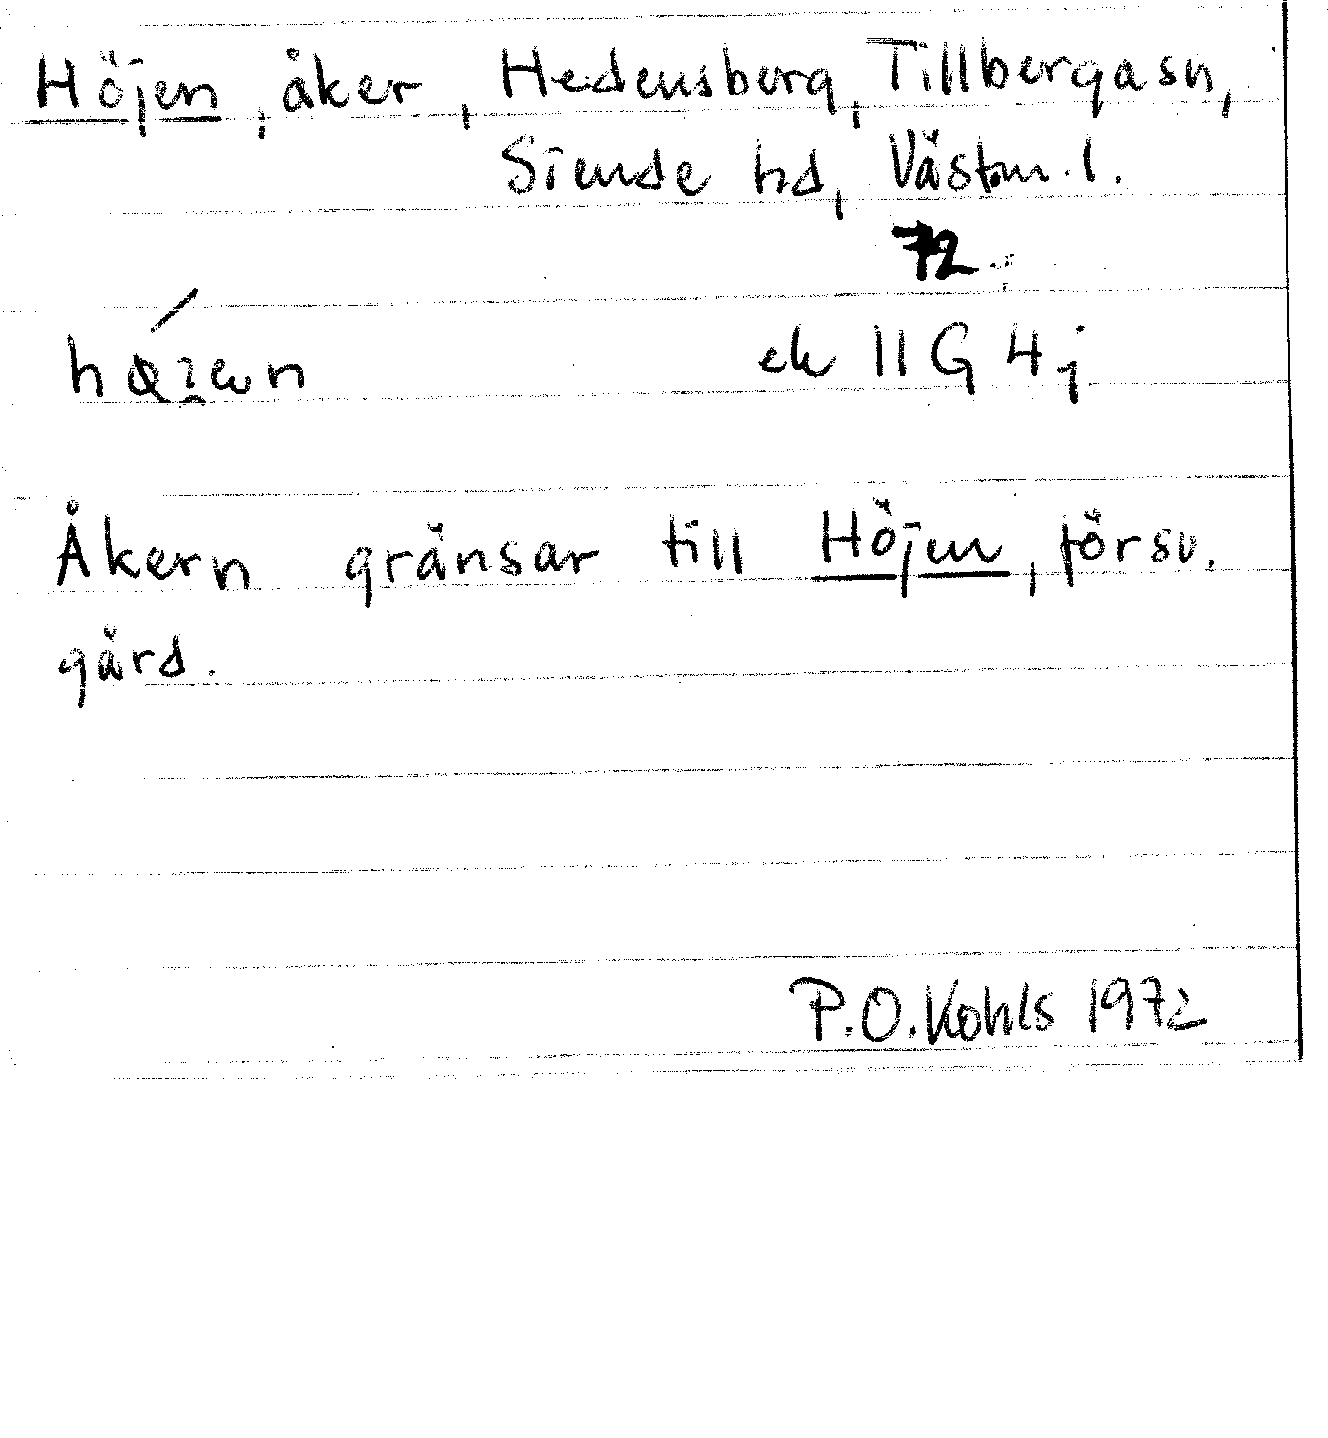 Höjen, åker, Hedensberg, Tillberga sn,
Siende hd, Västm. l.
72
ek 11G 4j
Åkern gränsar till Höjen, försv.
gård.
P.O. Kohls 1972